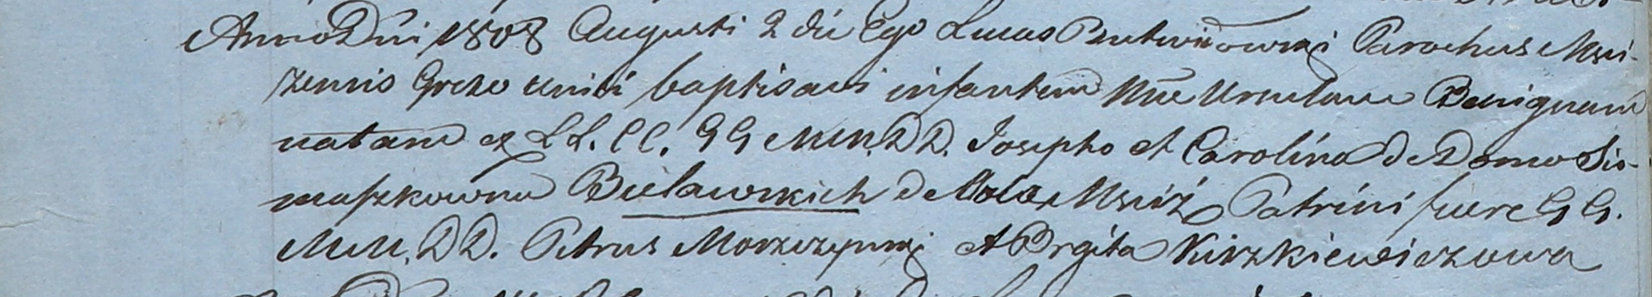 Anno Dni 1808 Augusti 2 die Ego Lucas Butwiłowski Parochus Msci-
żennis Greko uniti baptisavi infantem Nne Ursulam Benignam
natam ex LL. CC. GG MM. DD. Josepho et Carolina de Domo Sio-
maszkowna Bielawskich de Mściż Patrini fuere GG.
MM. DD. Petrus Morzczynski et Brgita Kirzkiewiczowa